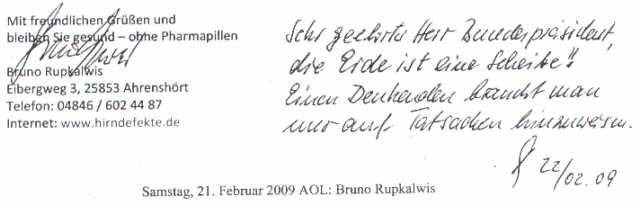 Mit freundlichen Grüßen und
bleiben Sie gesund – ohne Pharmapillen
Bruno Rupkalwis
Eibergweg 3, 25853 Ahrenshört
Telefon: 04846 / 602 44 87
Internet: www.hirndefekte.de
Sehr geehrter Herr Bundespräsident,
die Erde ist eine Scheibe".
Einen Denkenden braucht man
nur auf Tatsachen hinzuweisen.
22/02.09
Samstag, 21. Februar 2009 AOL: Bruno Rupkalwis